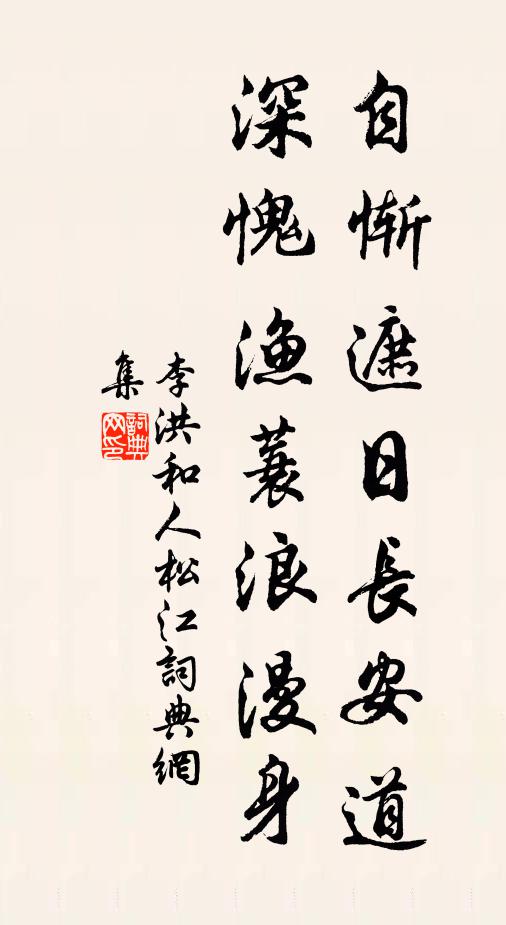 自惭遮日長安道
深愧漁蓑浪漫身
李洪和人松江詞典網
集
詞典网印